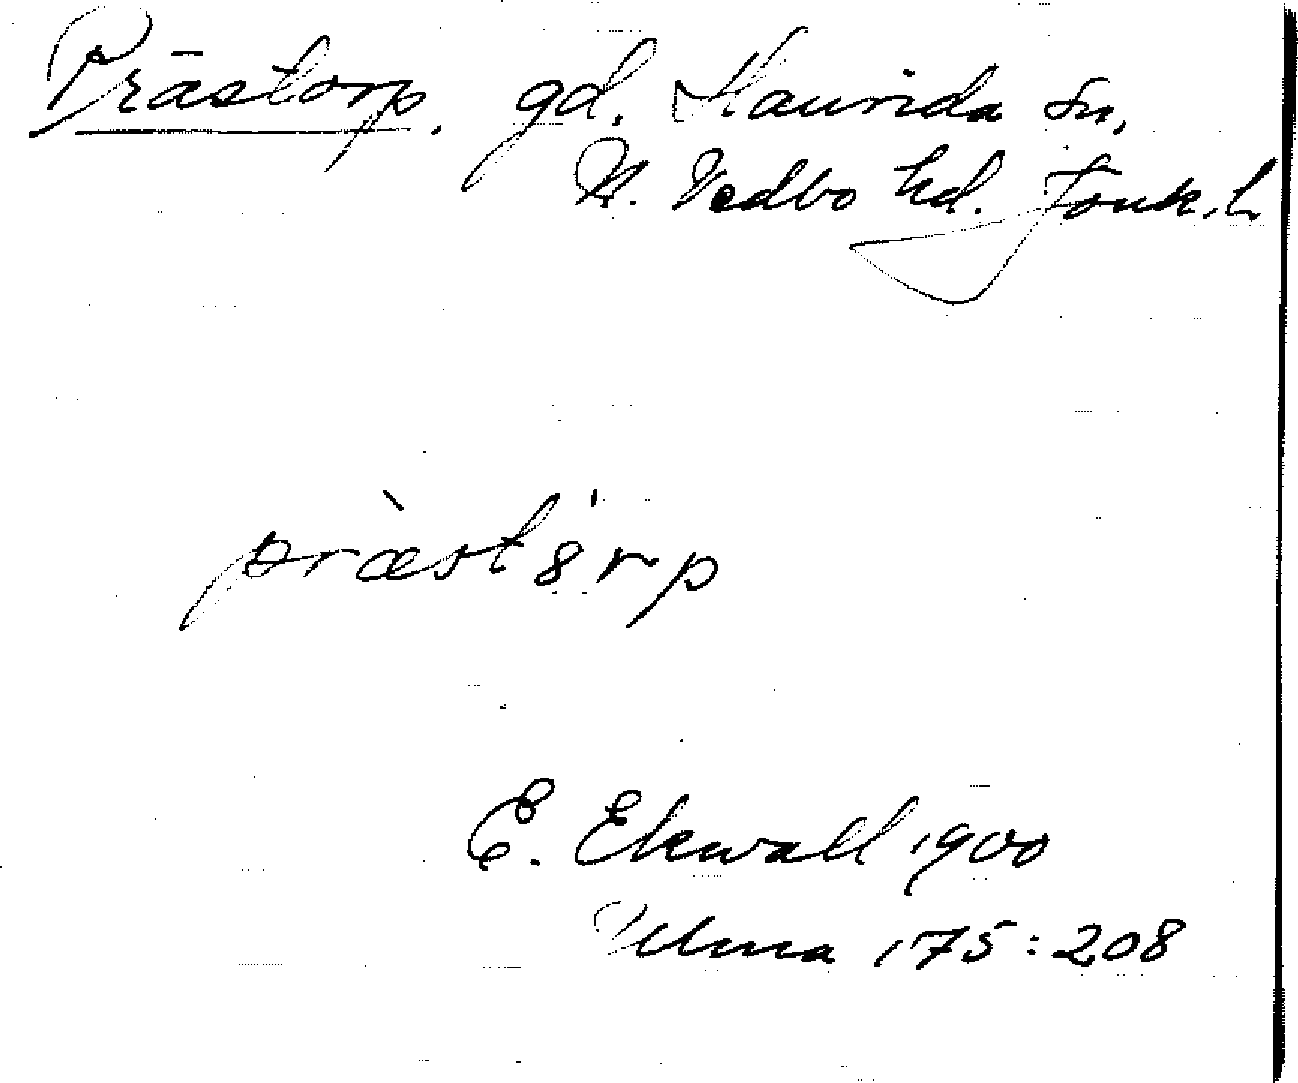 Prästorp, gd. Haurida sn,
N. Vedbo hd. Jönk. L
præ̀stö̍rp
E. Ekwall 1900
Ulma 175:208